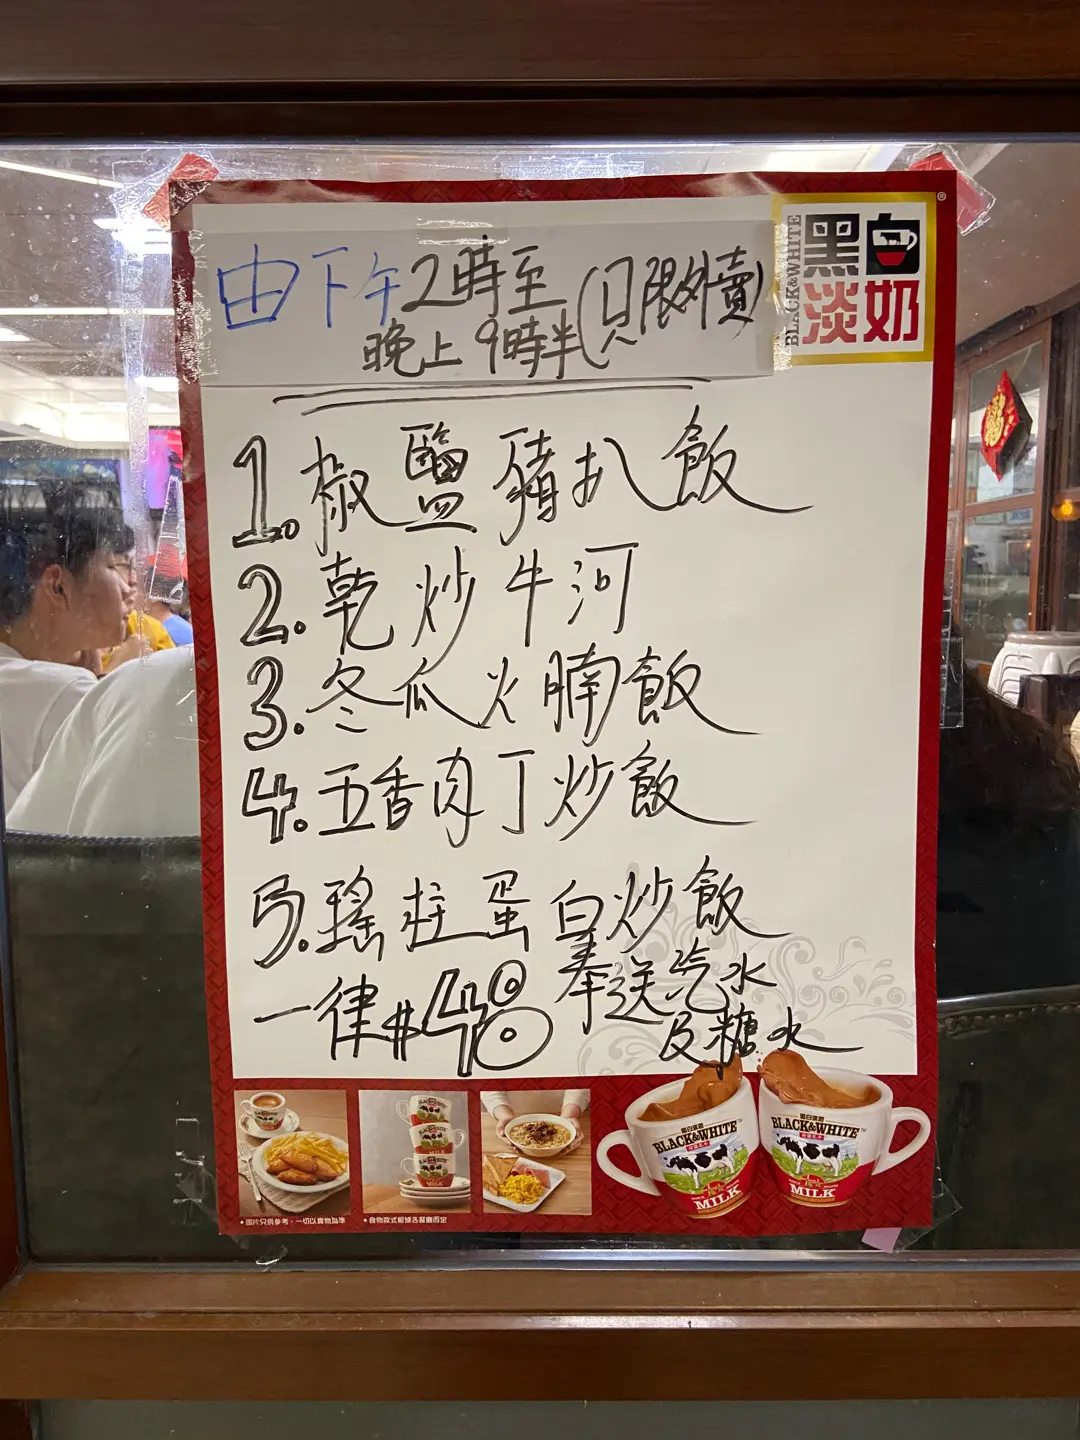 由下午2時至
晚上9時半(只限外賣)
BLACK&WHITE
黑白
淡奶
1.椒鹽豬扒飯
2.乾炒牛河
3.冬瓜火腩飯
4.五香肉丁炒飯
5.瑤柱蛋白炒飯
一律$48
奉送汽水
及糖水
BLACK&WHITE
MILK
BLACK&WHITE
MILK
•圖片只供參考，一切以實物為準
•食物款式根據各餐廳而定